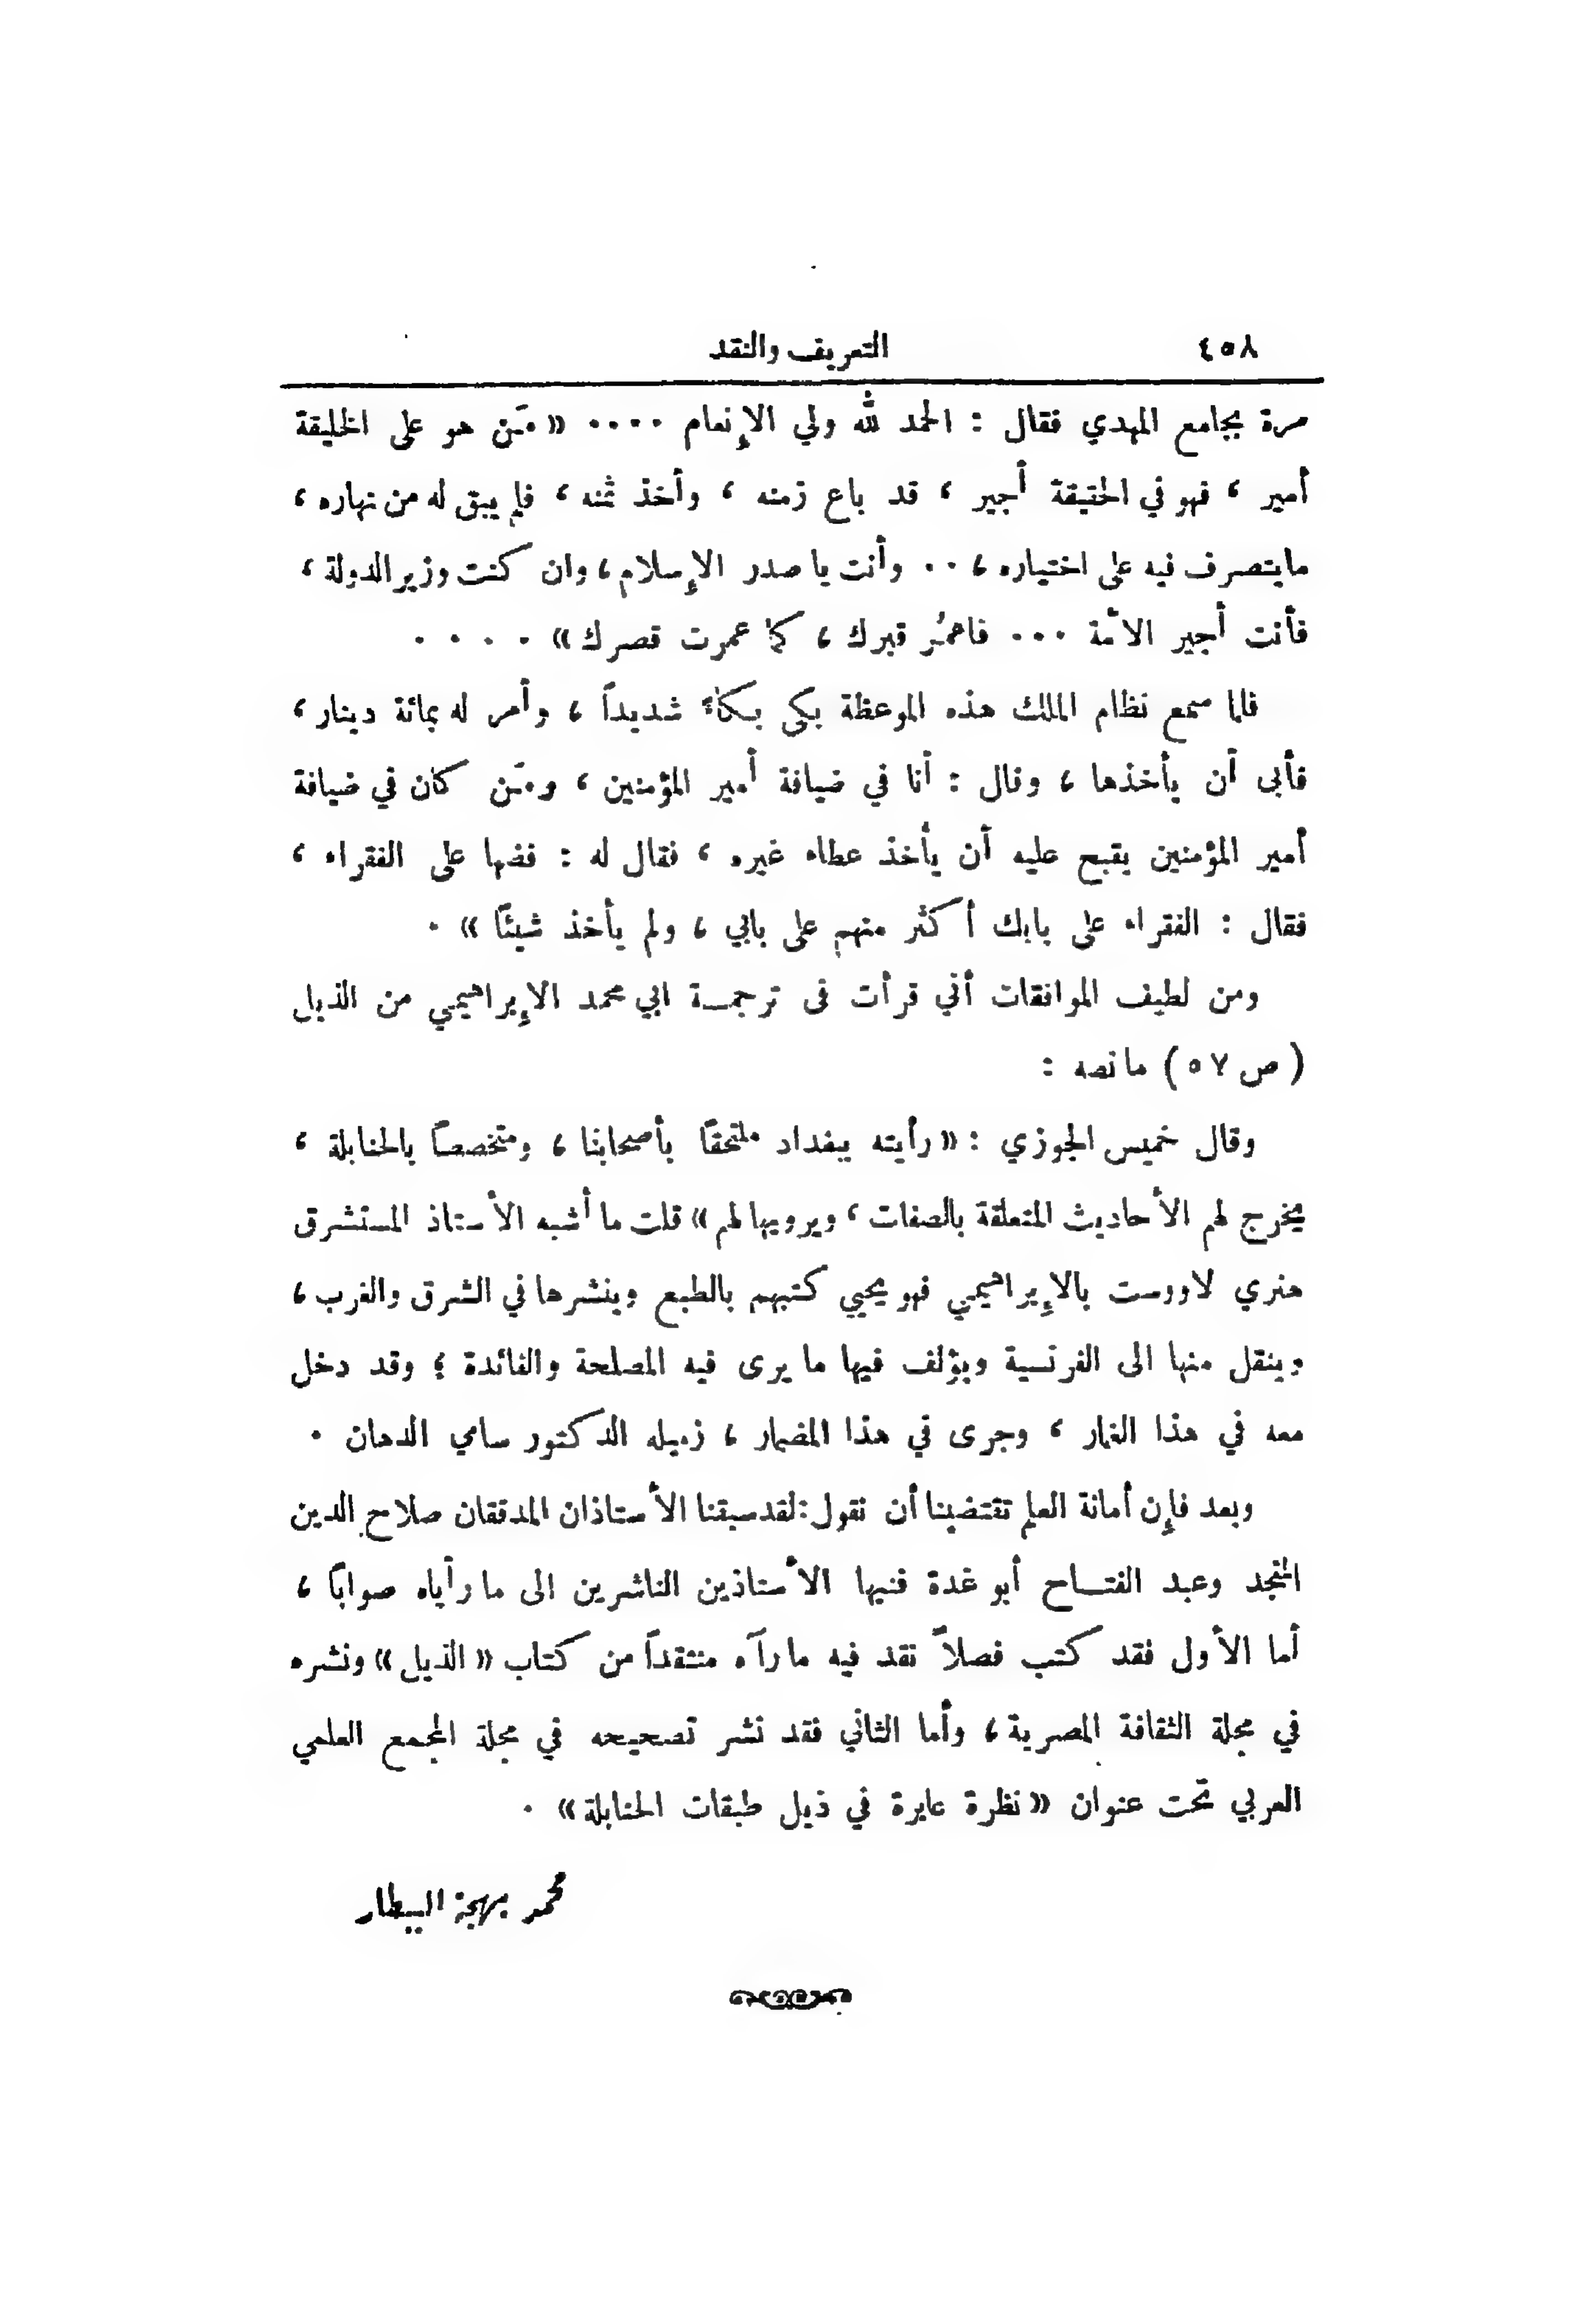 ٤٥٨ التعريف والنقد
مرة بجامع المهدي فقال : الحمد لله ولي الإنعام .... « مَن هو على الخليقة
أمير ، فهو في الحقيقة أجير ، قد باع زمنه ، وأخذ ثمنه ، فلم يبق له من نهاره ،
مايتصرف فيه على اختياره ، .. وأنت يا صدر الإسلام ، وان كنت وزير الدولة ،
فأنت أجير الأمة ... فاعمُر قبرك ، كما عمرت قصرك » . . . .
فلما سمع نظام الملك هذه الموعظة بكى بكاءً شديداً ، وأمر له بمائة دينار ،
فأبى أن يأخذها ، وقال : أنا في ضيافة أمير المؤمنين ، ومَن كان في ضيافة
أمير المؤمنين يقبح عليه أن يأخذ عطاء غيره ، فقال له : فضها على الفقراء ،
فقال : الفقراء على بابك أكثر منهم على بابي ، ولم يأخذ شيئاً » .
ومن لطيف الموافقات أني قرأت في ترجمة ابي محمد الإبراهيمي من الذيل
( ص ٥٧ ) مانصه :
وقال خميس الجوزي : « رأيته ببغداد ملتحقاً بأصحابنا ، ومتخصصاً بالحنابلة ،
يخرج لهم الأحاديث المتعلقة بالصفات ، ويرويها لهم » قلت ما أشبه الأستاذ المستشرق
هنري لاووست بالإبراهيمي فهو يحيي كتبهم بالطبع وينشرها في الشرق والغرب ،
وينقل منها الى الفرنسية ويؤلف فيها ما يرى فيه المصلحة والفائدة ؛ وقد دخل
معه في هذا الغمار ، وجرى في هذا المضمار ، زميله الدكتور سامي الدهان .
وبعد فإن أمانة العلم تقتضينا أن نقول : لقد سبقنا الأستاذان المدققان صلاح الدين
المنجد وعبد الفتاح أبو غدة فنبها الأستاذين الناشرين الى ما رأياه صواباً ،
أما الأول فقد كتب فصلاً نقد فيه ما رآه منتقداً من كتاب « الذيل » ونشره
في مجلة الثقافة المصرية ، وأما الثاني فقد نشر تصحيحه في مجلة المجمع العلمي
العربي تحت عنوان « نظرة عابرة في ذيل طبقات الحنابلة » .
محمد بهجة البيطار